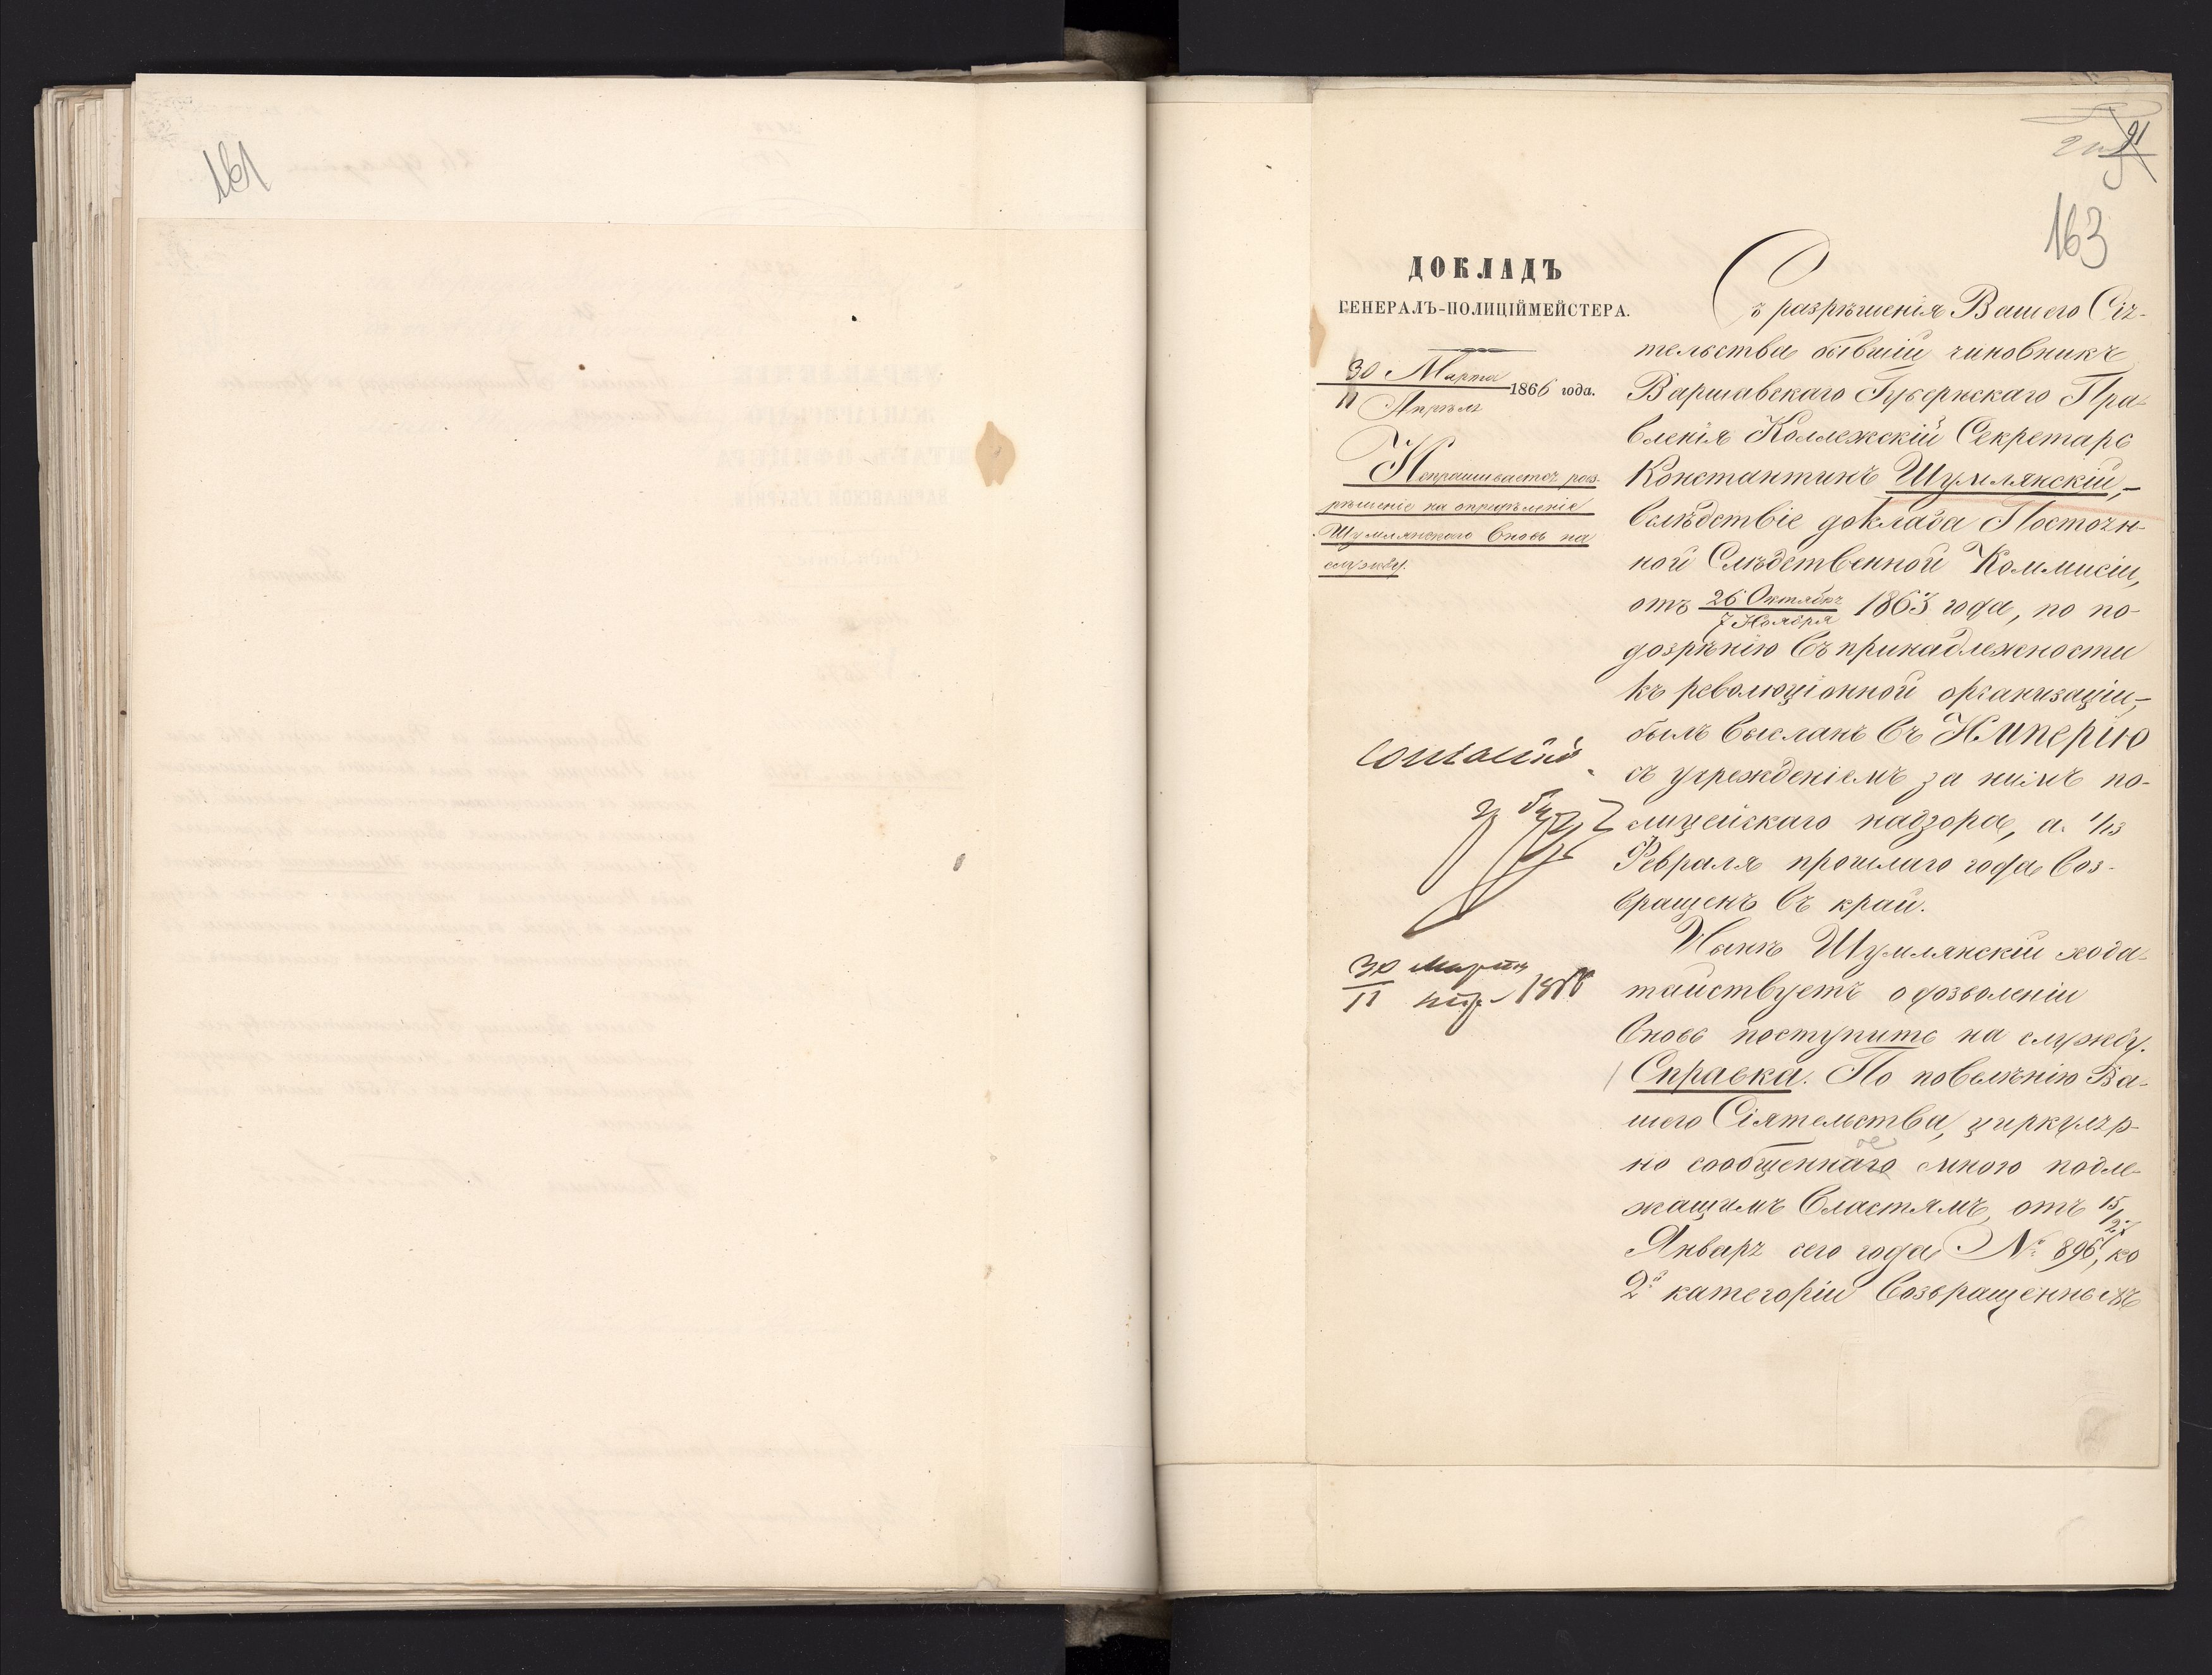 161
91
163
ДОКЛАДЪ
ГЕНЕРАЛЪ-ПОЛИЦІЙМЕЙСТЕРА.
30 Марта
11 Апрѣля
1866 года.
Испрашивается раз-
рѣшеніе на опредѣленіе
Шумлянскаго вновь на
службу.
Согласенъ
30 Марта
11 Апр. 1866
Съ разрѣшенія Вашего Сія-
тельства бывшій чиновникъ
Варшавскаго Губернскаго Пра-
вленія Коллежскій Секретарь
Константинъ Шумлянскій,-
вслѣдствіе доклада Постоян-
ной Слѣдственной Коммисіи,
отъ 26 Октября / 7 Ноября 1863 года, по по-
дозрѣнію въ принадлежности
къ революціонной организаціи,-
былъ высланъ въ Имперію
съ учрежденіемъ за нимъ по-
лицейскаго надзора, а 1/13
Февраля прошлаго года воз-
вращенъ въ край.
Нынѣ Шумлянскій хода-
тайствуетъ о дозволеніи
вновь поступить на службу.
Справка. По повелѣнію Ва-
шего Сіятельства, циркуляр-
но сообщеннаго мною подле-
жащимъ властямъ, отъ 15/27
Января сего года № 896, ко
2й категоріи возвращенныхъ